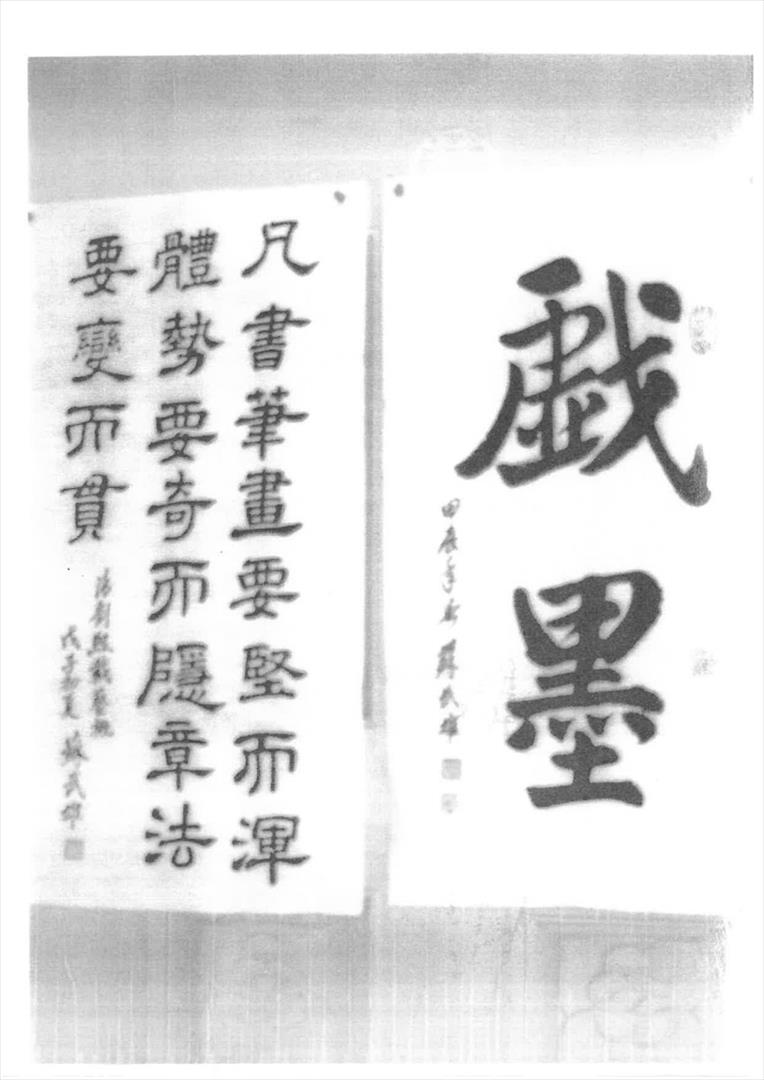 戯墨
甲辰年 蘇武雄
凡書筆畫要堅而渾
體勢要奇而隱章法
要變而貫
清劉熙載藝概
戊子初夏 蘇武雄